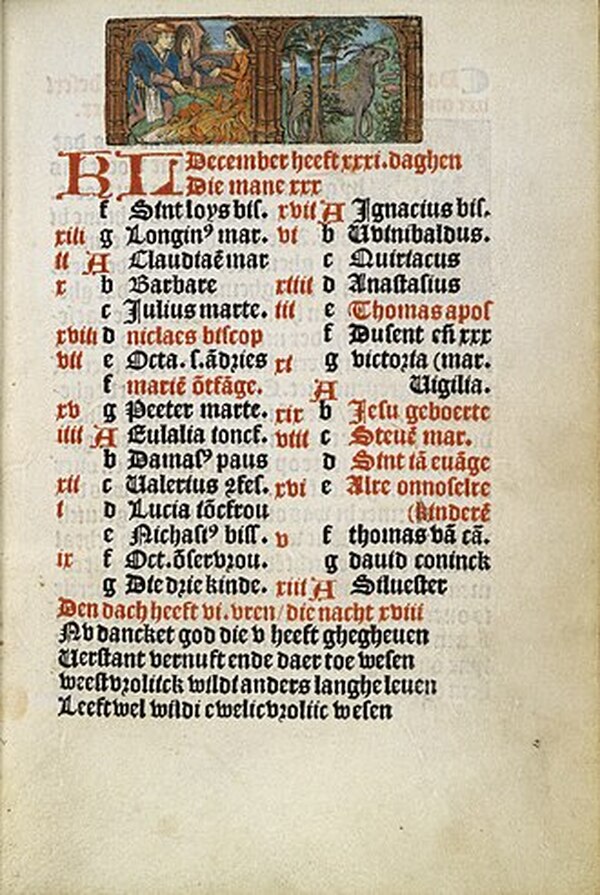 KL December heeft xxxi. daghen
Die mane xxx
f Sint loys bis.
xiii g Longinꝰ mar.
ii A Claudiaē mar
x b Barbare
c Julius marte.
xviii d niclaes biscop
vii e Octa. s. ādries
f mariē ōtfāge.
xv g Peeter marte.
iiii A Eulalia ioncf.
b Damasꝰ paus
xii c Valerius
i d Lucia iōcfrou
e Nichasiꝰ biss.
ix f Oct. ōser vrou.
g Die drie kinde.
xvii A Ignacius bis.
vi b Wvinibaldus.
c Quiriacus
xiiii d Anastasius
iii e Thomas apos
f Dusent eñ xxx
xi g victoria (mar.
A Vigilia.
xix b Jesu geboerte
viii c Steuē mar.
d Sint iā euāge
xvi e Alre onnoselre
(kinderē
v f thomas vā cā.
g dauid coninck
xiii A Siluester
Den dach heeft vi. vren/ die nacht xviii
Nv dancket god die v heeft ghegheuen
Verstant vernuft ende daer toe wesen
weest vroliick wildi anders langhe leuen
Leeft wel wildi ewelic vroliic wesen